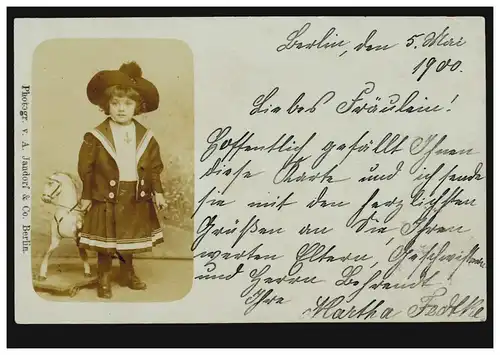 Berlin, den 5. Mai
1900.
Liebes Fräulein!
Hoffentlich gefällt Ihnen
diese Karte und ich sende
sie mit den herzlichsten
Grüßen an Sie, Ihren
werten Eltern, Geschwistern
und Herrn Behrendt
Ihre
Martha Fedtke
Photogr. v. A. Jandorf & Co. Berlin.